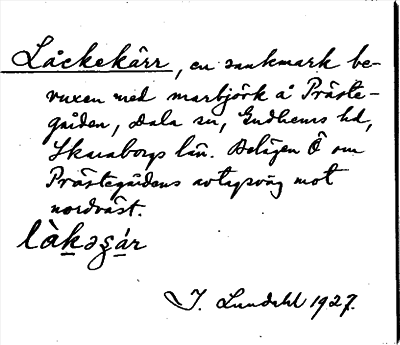 Låckekärr, en sankmark be-
vuxen med marbjörk å Präste-
gården, Dala sn, Gudhems hd,
Skaraborgs län. Belägen Ö om
Prästegårdens avtagsväg mot
nordväst.
I. Lundahl 1927.